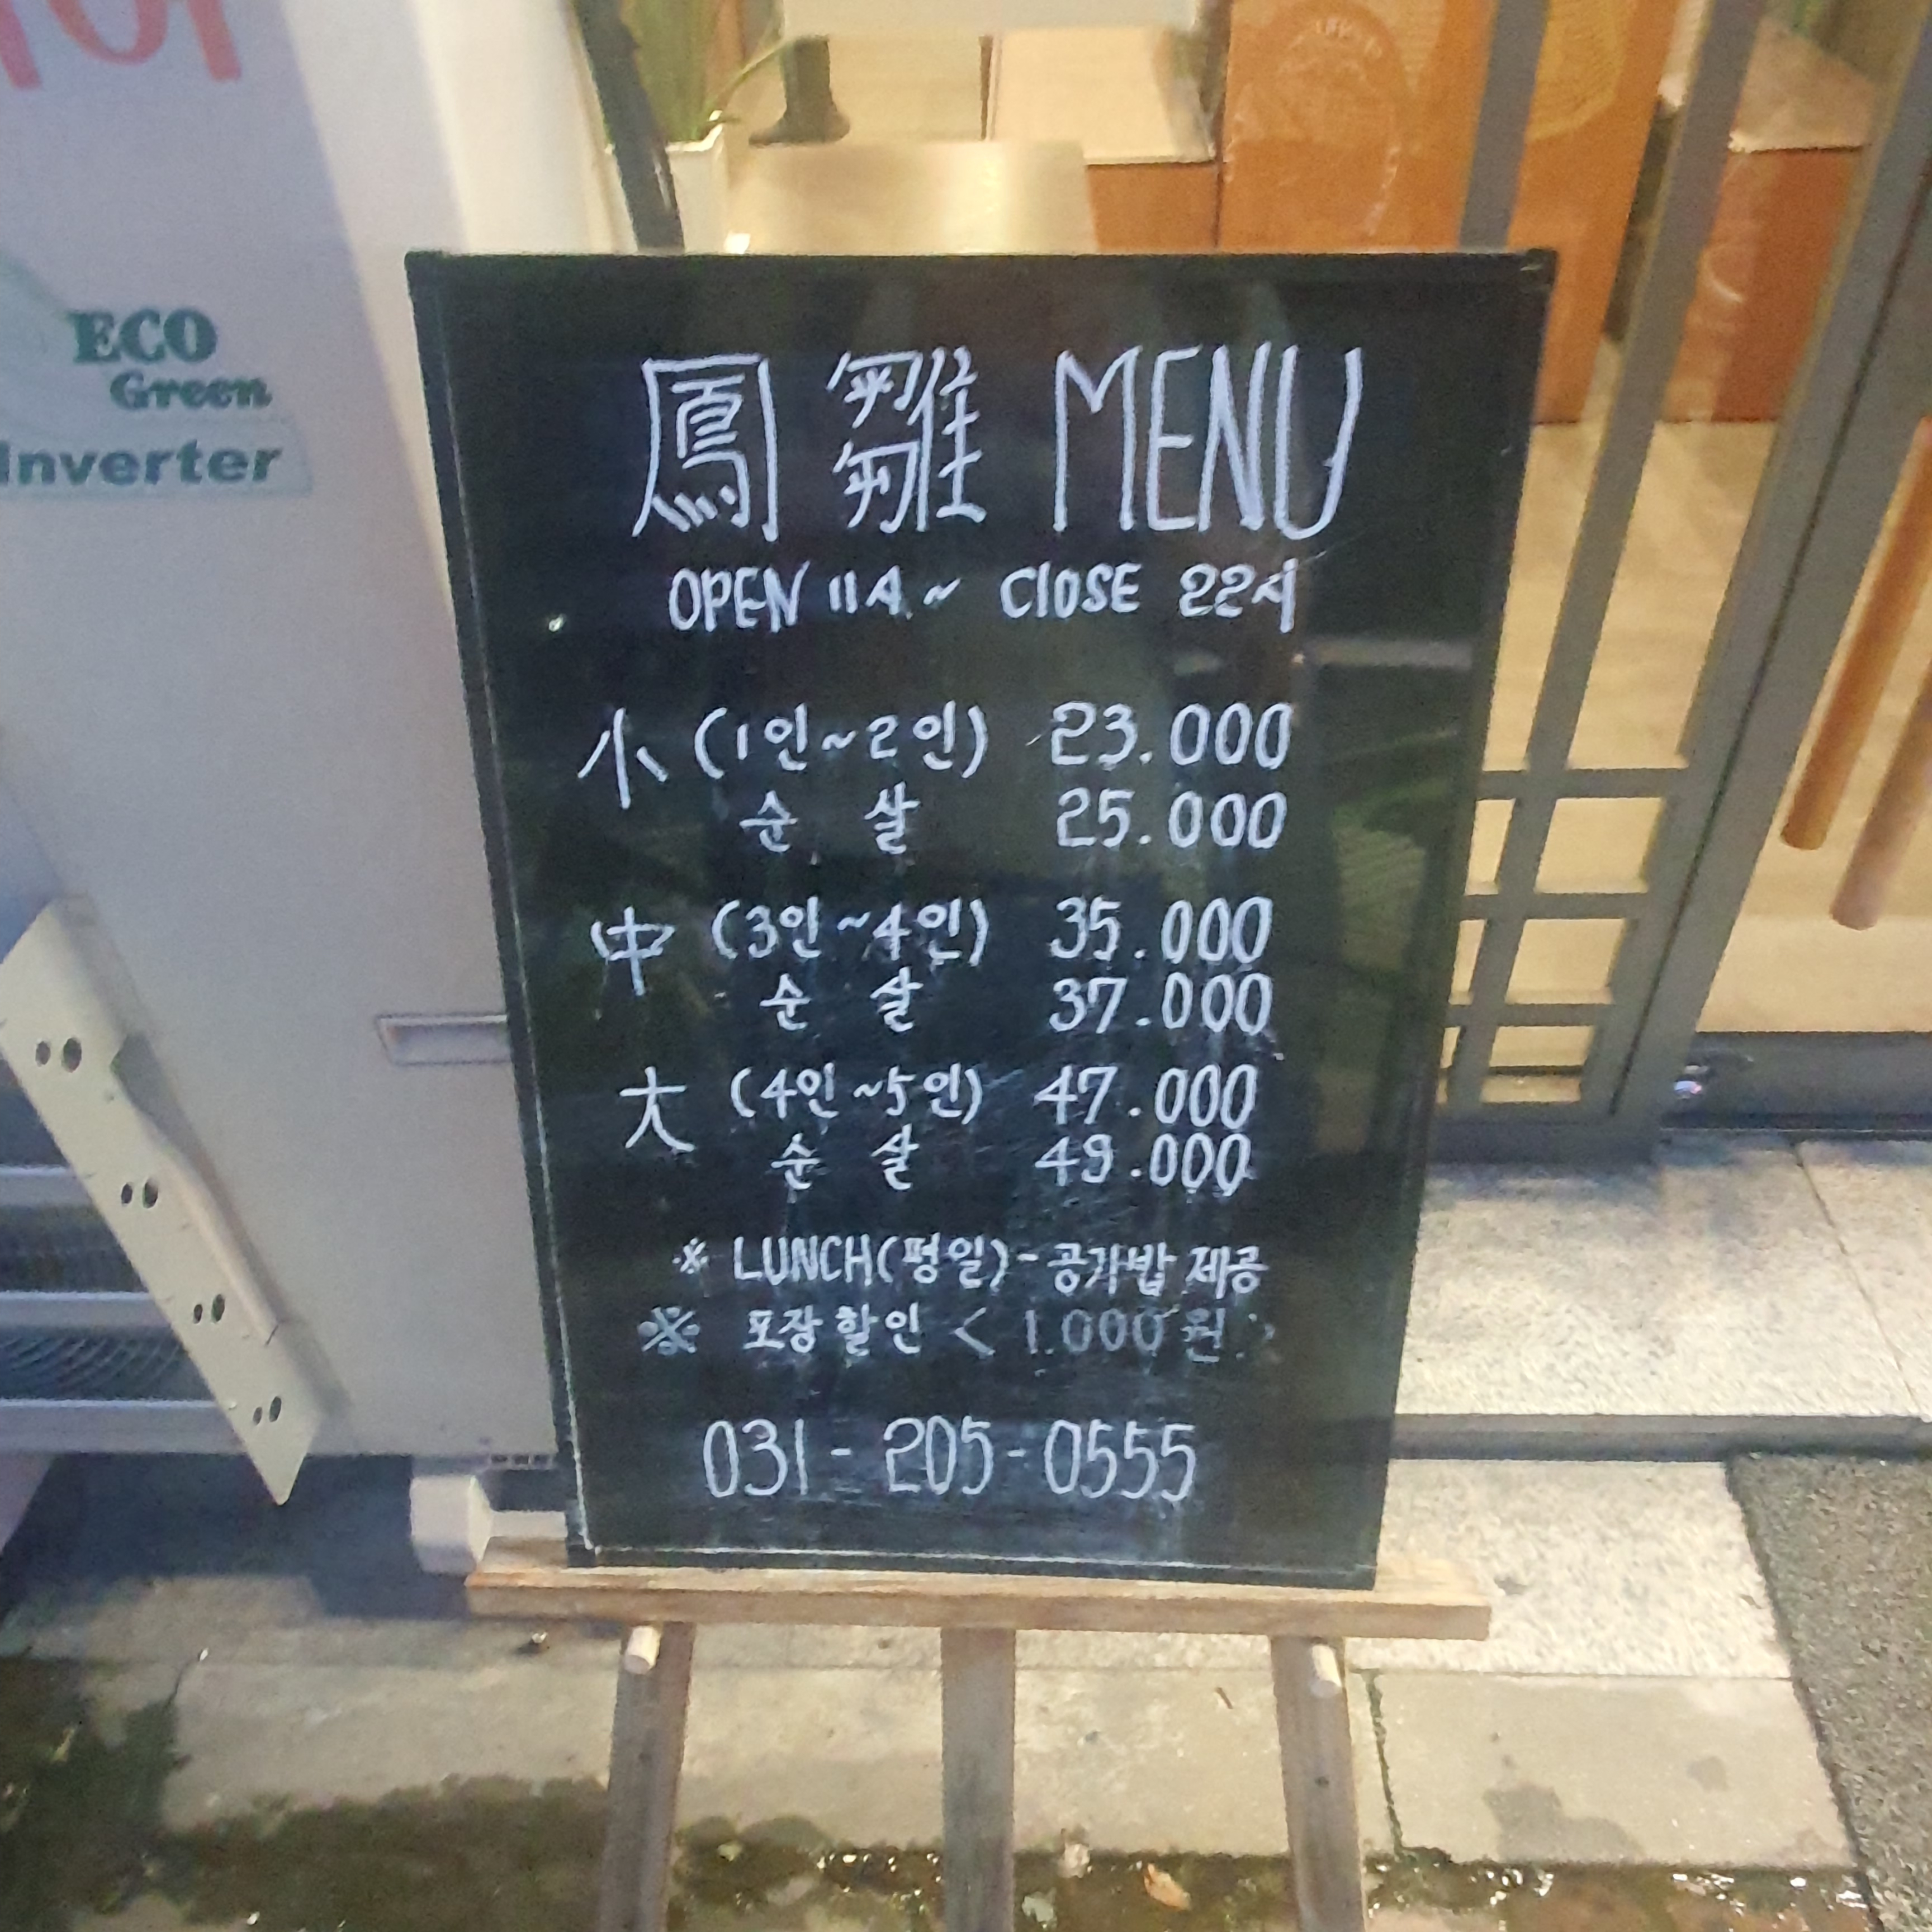 ECO
Green
Inverter
鳳雛 MENU
OPEN 11시 ~ CLOSE 22시
小 (1인~2인) 23.000
순 살 25.000
中 (3인~4인) 35.000
순 살 37.000
大 (4인~5인) 47.000
순 살 49.000
※ LUNCH(평일)-공기밥 제공
※ 포장할인 < 1.000원 >
031-205-0555